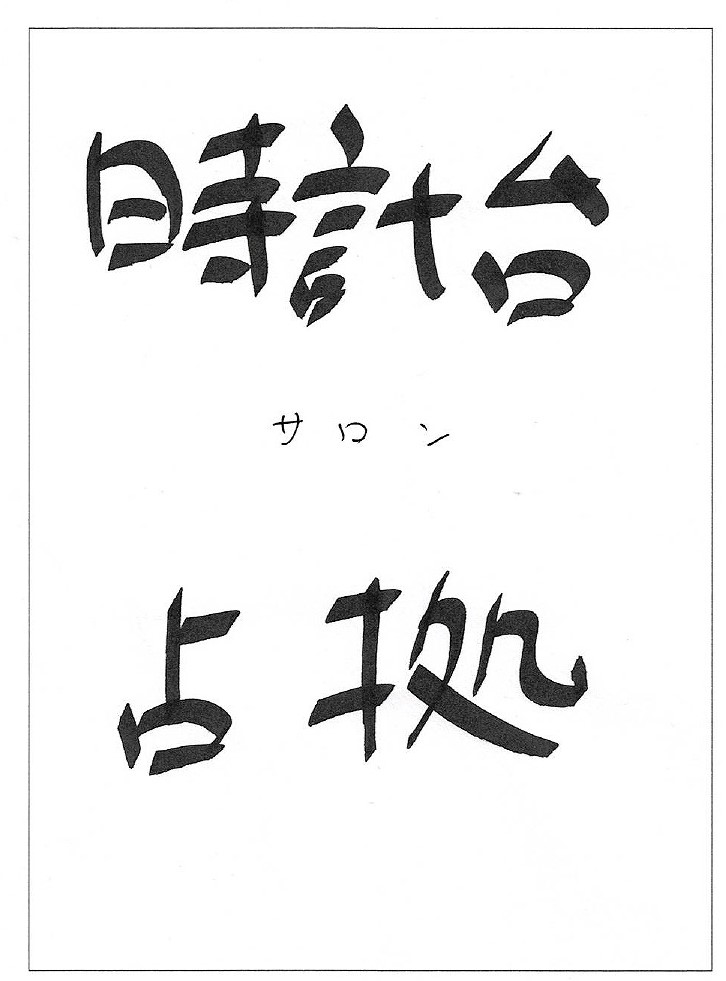 時計台
サロン
占拠